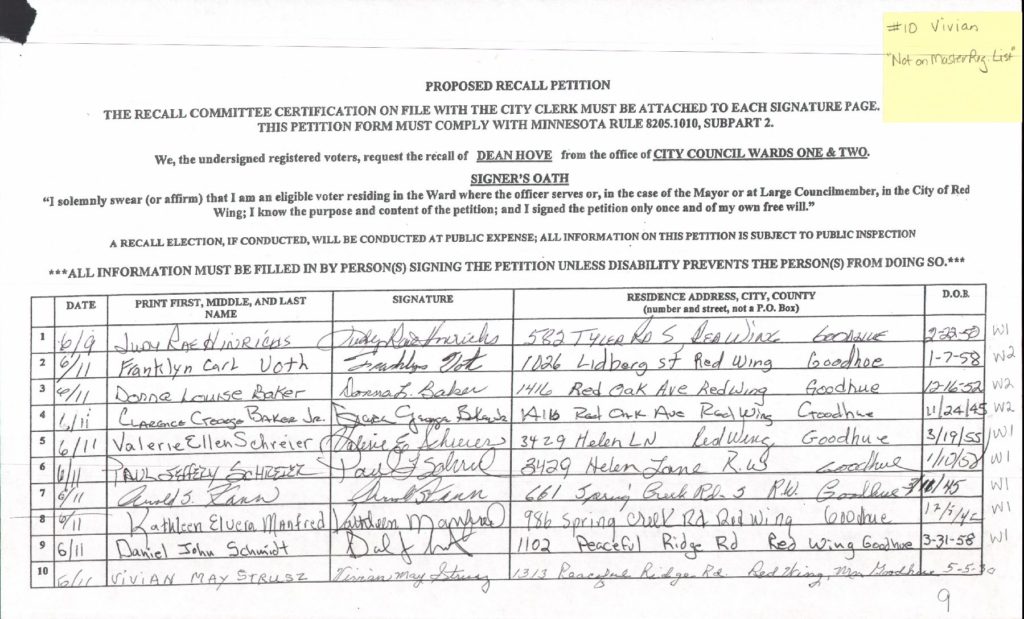 #10 Vivian
"Not on Master Reg. List"
PROPOSED RECALL PETITION
THE RECALL COMMITTEE CERTIFICATION ON FILE WITH THE CITY CLERK MUST BE ATTACHED TO EACH SIGNATURE PAGE.
THIS PETITION FORM MUST COMPLY WITH MINNESOTA RULE 8205.1010, SUBPART 2.
We, the undersigned registered voters, request the recall of DEAN HOVE from the office of CITY COUNCIL WARDS ONE & TWO.
SIGNER'S OATH
"I solemnly swear (or affirm) that I am an eligible voter residing in the Ward where the officer serves or, in the case of the Mayor or at Large Councilmember, in the City of Red
Wing; I know the purpose and content of the petition; and I signed the petition only once and of my own free will."
A RECALL ELECTION, IF CONDUCTED, WILL BE CONDUCTED AT PUBLIC EXPENSE; ALL INFORMATION ON THIS PETITION IS SUBJECT TO PUBLIC INSPECTION
***ALL INFORMATION MUST BE FILLED IN BY PERSON(S) SIGNING THE PETITION UNLESS DISABILITY PREVENTS THE PERSON(S) FROM DOING SO.***
DATE PRINT FIRST, MIDDLE, AND LAST NAME SIGNATURE RESIDENCE ADDRESS, CITY, COUNTY (number and street, not a P.O. Box) D.O.B.
1 6/9 JUDY RAE HINRICHS Judy Rae Hinrichs 582 TYLER RD S RED WING GOODHUE 2-22-50 W1
2 6/11 Franklyn Carl Voth 1026 Lidberg st Red Wing Goodhoe 1-7-58 W2
3 6/11 Donna Louise Baker Donna L. Baker 1416 Red Oak Ave Redwing Goodhue 12-16-52 W2
4 6/11 CLARENCE George BAKER Jr. 1416 Red Oak Ave Red Wing Goodhue 11/24/45 W2
5 6/11 Valerie Ellen Schreier 3429 Helen LN Red Wing Goodhue 3/19/55 W1
6 6/11 PAUL JEFFERY SCHREIER 3429 Helen Lane R.W Goodhue W1
7 6/11 Arnold S. 661 Spring Creek Rd. S R.W. Goodhue W1
8 6/11 Kathleen Elvera Manfred Kathleen Manfred 986 Spring Creek Rd Red Wing Goodhue W1
9 6/11 Daniel John Schmidt 1102 Peaceful Ridge Rd Red Wing Goodhue 3-31-58 W1
10 6/11 VIVIAN MAY STRUSZ Vivian May Strusz 1313 Peaceful Ridge Rd Red Wing, Mn Goodhue 5-5-30
9